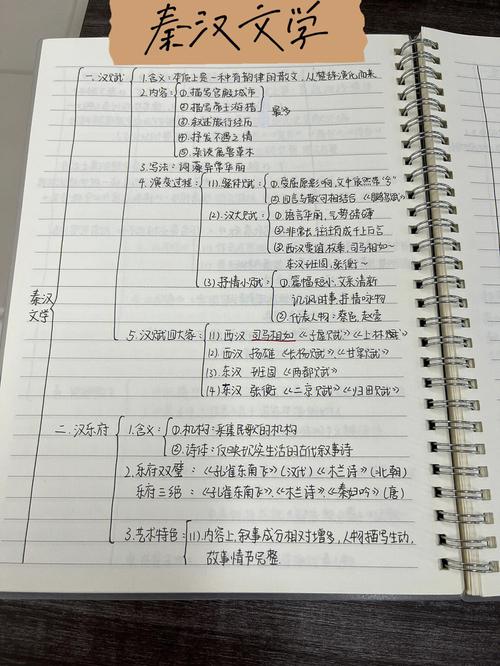 秦汉文学
秦汉文学
一.汉赋
1.含义:本质上是一种有韵律的散文,从楚辞演化而来
2.内容:①.描写宫殿城市
②.描写帝王游猎
最多
③.叙述旅行经历
④.抒发不遇之情
⑤.杂谈禽兽草木
3.写法:词藻异常华丽
4.演变过程:(1).骚体赋:①.受屈原影响,文中依然带“兮”
②.四言与散句相结合《鵩鸟赋》
(2).汉大赋:①.语言华丽,气势磅礴
②.非常长,往往有成千上万言
③.西汉枚乘,扬雄,司马相如~
东汉班固,张衡~
(3).抒情小赋:①.篇幅短小,文采清新
讥讽时事,抒情咏物
②.代表人物:蔡邕,赵壹
5.汉赋四大家:(1).西汉 司马相如《子虚赋》《上林赋》
(2).西汉 扬雄《长杨赋》《甘泉赋》
(3).东汉 班固《两都赋》
(4).东汉 张衡《二京赋》《归田赋》
二.汉乐府
1.含义:①.机构:采集民歌的机构
②.诗体:反映现实生活的古代叙事诗
2.乐府双璧:《孔雀东南飞》(汉代)《木兰诗》(北朝)
乐府三绝:《孔雀东南飞》,《木兰诗》,《秦妇吟》(唐)
3.艺术特色:(1).内容上,叙事成分相对增多,人物描写生动,
故事情节完整.